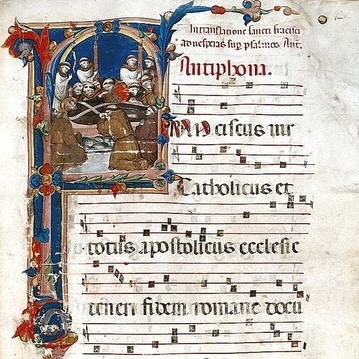 In translatione sancti francisci
ad vesperas sup. psalmos Ant.
Antiphona.
Franciscus uir
Catholicus et
totus apostolicus ecclesie
teneri fidem romane docu